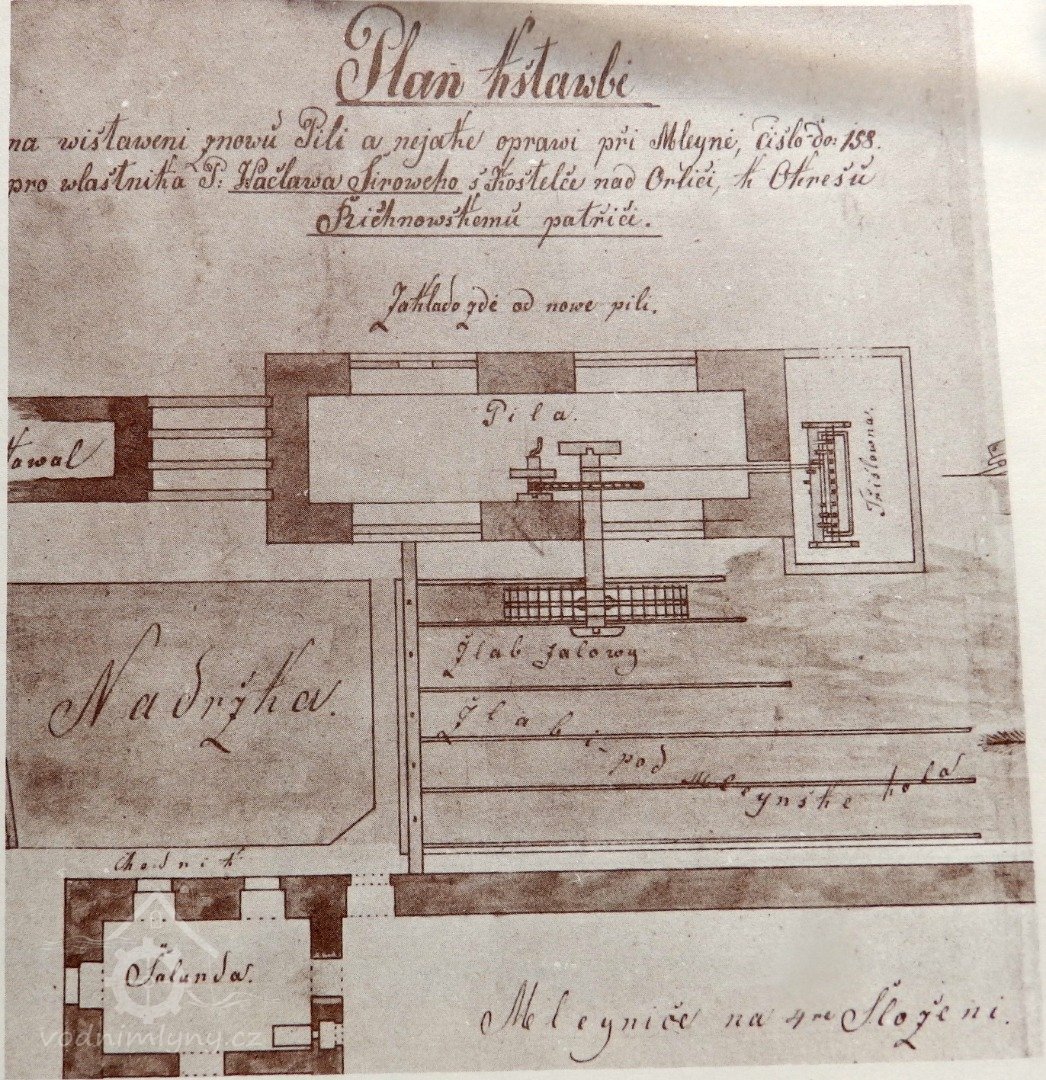 Plan kštawbě
na wistaweni znowú Pili a nejake oprawi při Mleyně, číslo do: 158.
pro wlastnika P: Wačlawa Siroweho s Kostelče nad Orliči, k Okrešu
Řichnowskemu patřiči.
Zaklado zdě od nowe pili.
Pila.
Třislowna.
Žlab Jalowy
Žlabi pod Mleynske kola
Nadržka.
Chodnik
Šalanda.
Mleyniče na 4re Složeni.
vodnimlyny.cz